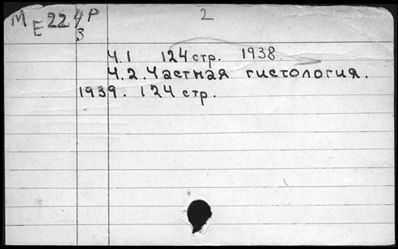 МЕ224Р 2
3
Ч.1 124 стр. 1938.
Ч.2. Частная гистология.
1939. 124 стр.